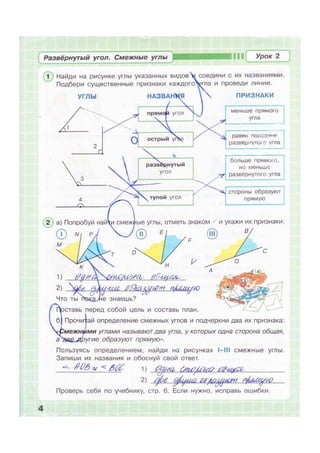 Развёрнутый угол. Смежные углы
Урок 2
1 Найди на рисунке углы указанных видов и соедини с их названиями.
Подбери существенные признаки каждого угла и проведи линии.
УГЛЫ НАЗВАНИЯ ПРИЗНАКИ
прямой угол
меньше прямого
угла
1
2
острый угол
равен половине
развёрнутого угла
3
развёрнутый
угол
больше прямого,
но меньше
развёрнутого угла
4
тупой угол
стороны образуют
прямую
2 а) Попробуй найти смежные углы, отметь знаком ✓ и укажи их признаки:
I N P II E F III B
M T D H V C
K A O
1) одна сторона общая
2) две другие образуют прямую
Что ты пока не знаешь?
Поставь перед собой цель и составь план.
б) Прочитай определение смежных углов и подчеркни два их признака:
«Смежными углами называют два угла, у которых одна сторона общая,
а две другие образуют прямую».
Пользуясь определением, найди на рисунках I–III смежные углы.
Запиши их названия и обоснуй свой ответ.
< AOB и < BOC 1) Одна сторона общая
2) две другие образуют прямую
Проверь себя по учебнику, стр. 6. Если нужно, исправь ошибки.
4